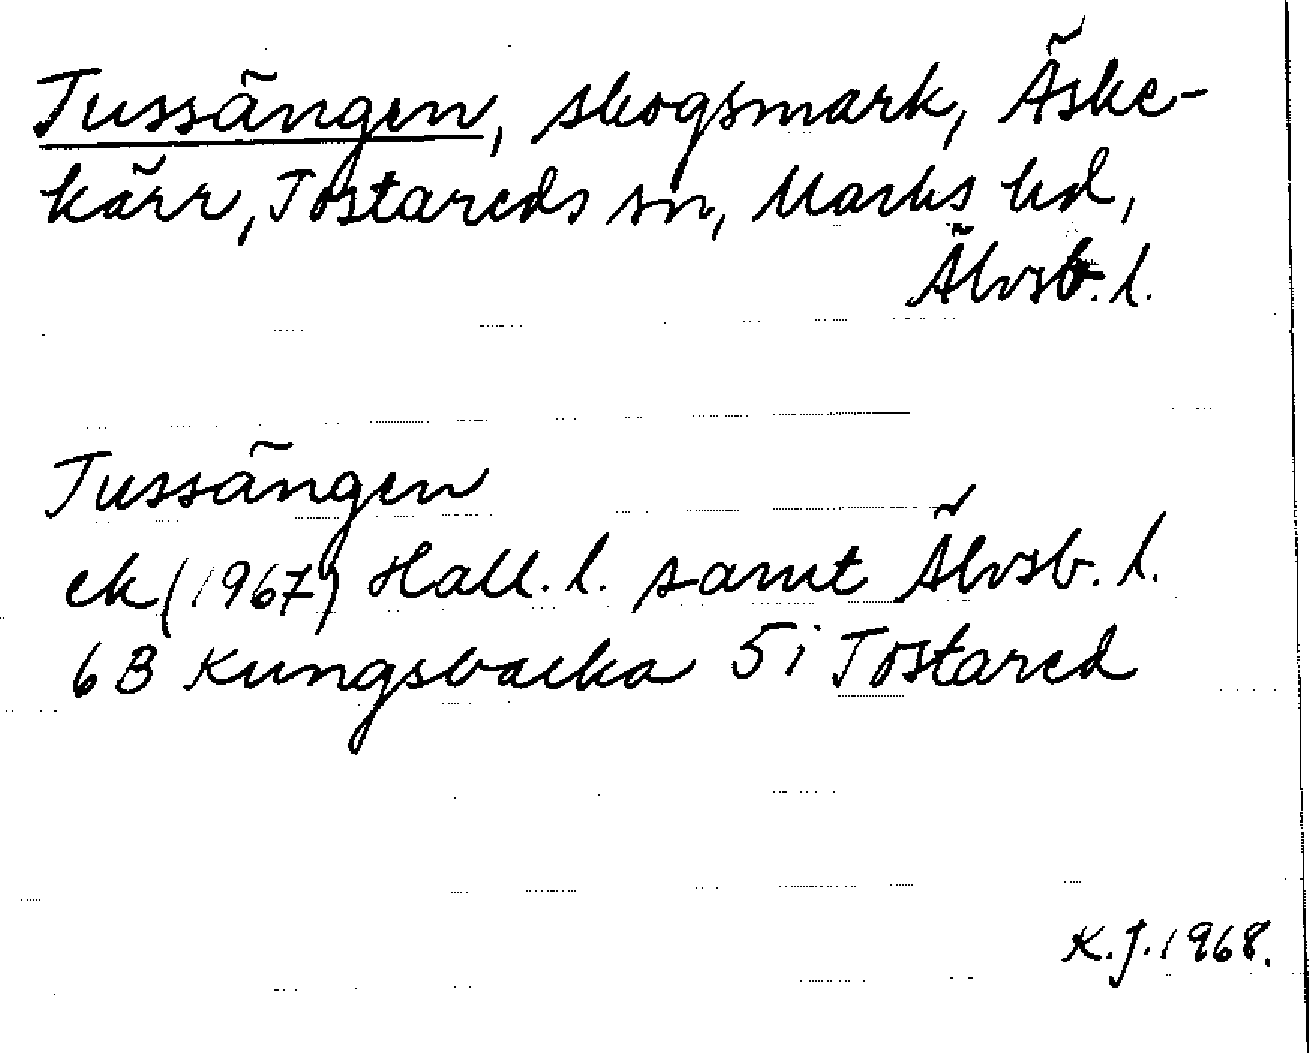 Tussängen, skogsmark, Äske-
kärr, Tostareds sn, Marks hd,
Älvsb. l.
Tussängen
ek (1967) Hall. l. samt Älvsb. l.
6B Kungsbacka 5i Tostared
K.J. 1968.